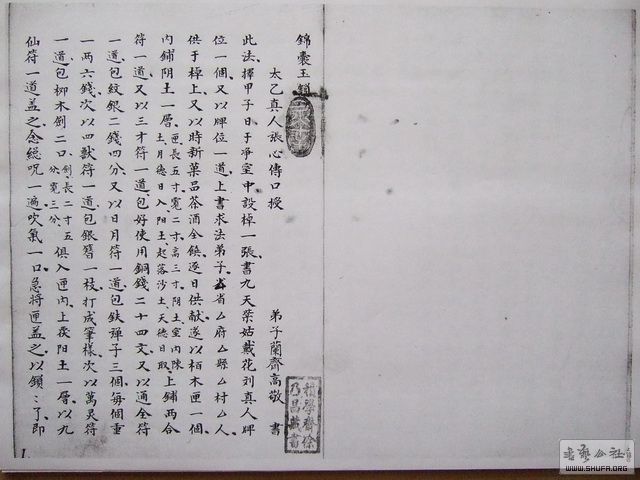 錦囊玉鎖
太乙真人張心傳口授
弟子蘭齋高敬 書
此法擇甲子日于凈室中設棹一張書九天紫姑戴花刘真人牌
位一個又以牌位一道上書求法弟子厶省厶府厶縣厶村厶人
供于棹上又以時新菓品茶酒全饒逐日供献遂以栢木匣一個
內鋪阴土一層匣長五寸寬二寸高三寸阴土室內陳土月德日入阳土起落沙土天德日取上鋪两合
符一道又以三才符一道包好使用銅錢二十四文又以通全符
一道包紋銀二錢四分又以日月符一道包鉄彈子三個每個重
一两六錢次以四獸符一道包銀簪一枝打成筆樣次以萬灵符
一道包柳木劍二口劍長二寸五分寬三分俱入匣內上葢阳土一層以九
仙符一道盖之念總咒一遍吹氣一口急將匣盖之以鎖鎖了即
積學齋徐乃昌藏書
1.
書藝公社
WWW.SHUFA.ORG